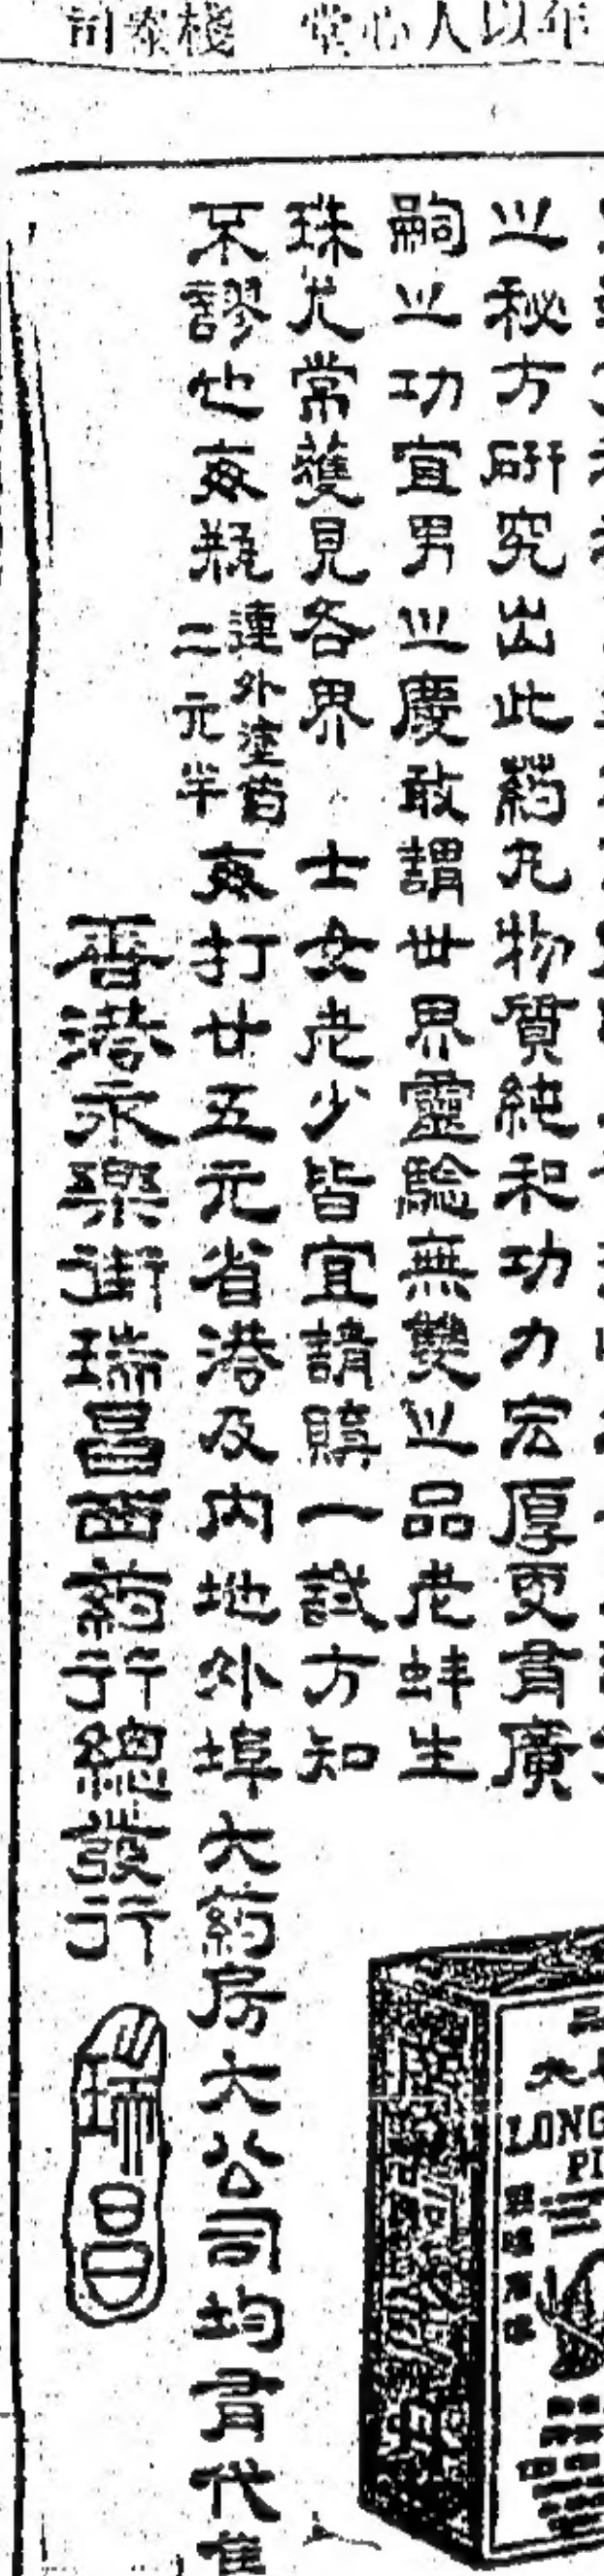 年以人心堂 棧泰司
之秘方研究出此葯丸物質純和功力宏厚更有廣
嗣之功宜男之慶敢謂世界靈驗無雙之品老蚌生
珠尤常獲見各界 士女老少皆宜請購一試方知
不謬也每瓶連外埠二元半每打廿五元省港及内地外埠大葯房大公司均有代售
香港永樂街瑞昌西葯行總發行
瑞昌
LONG
PI